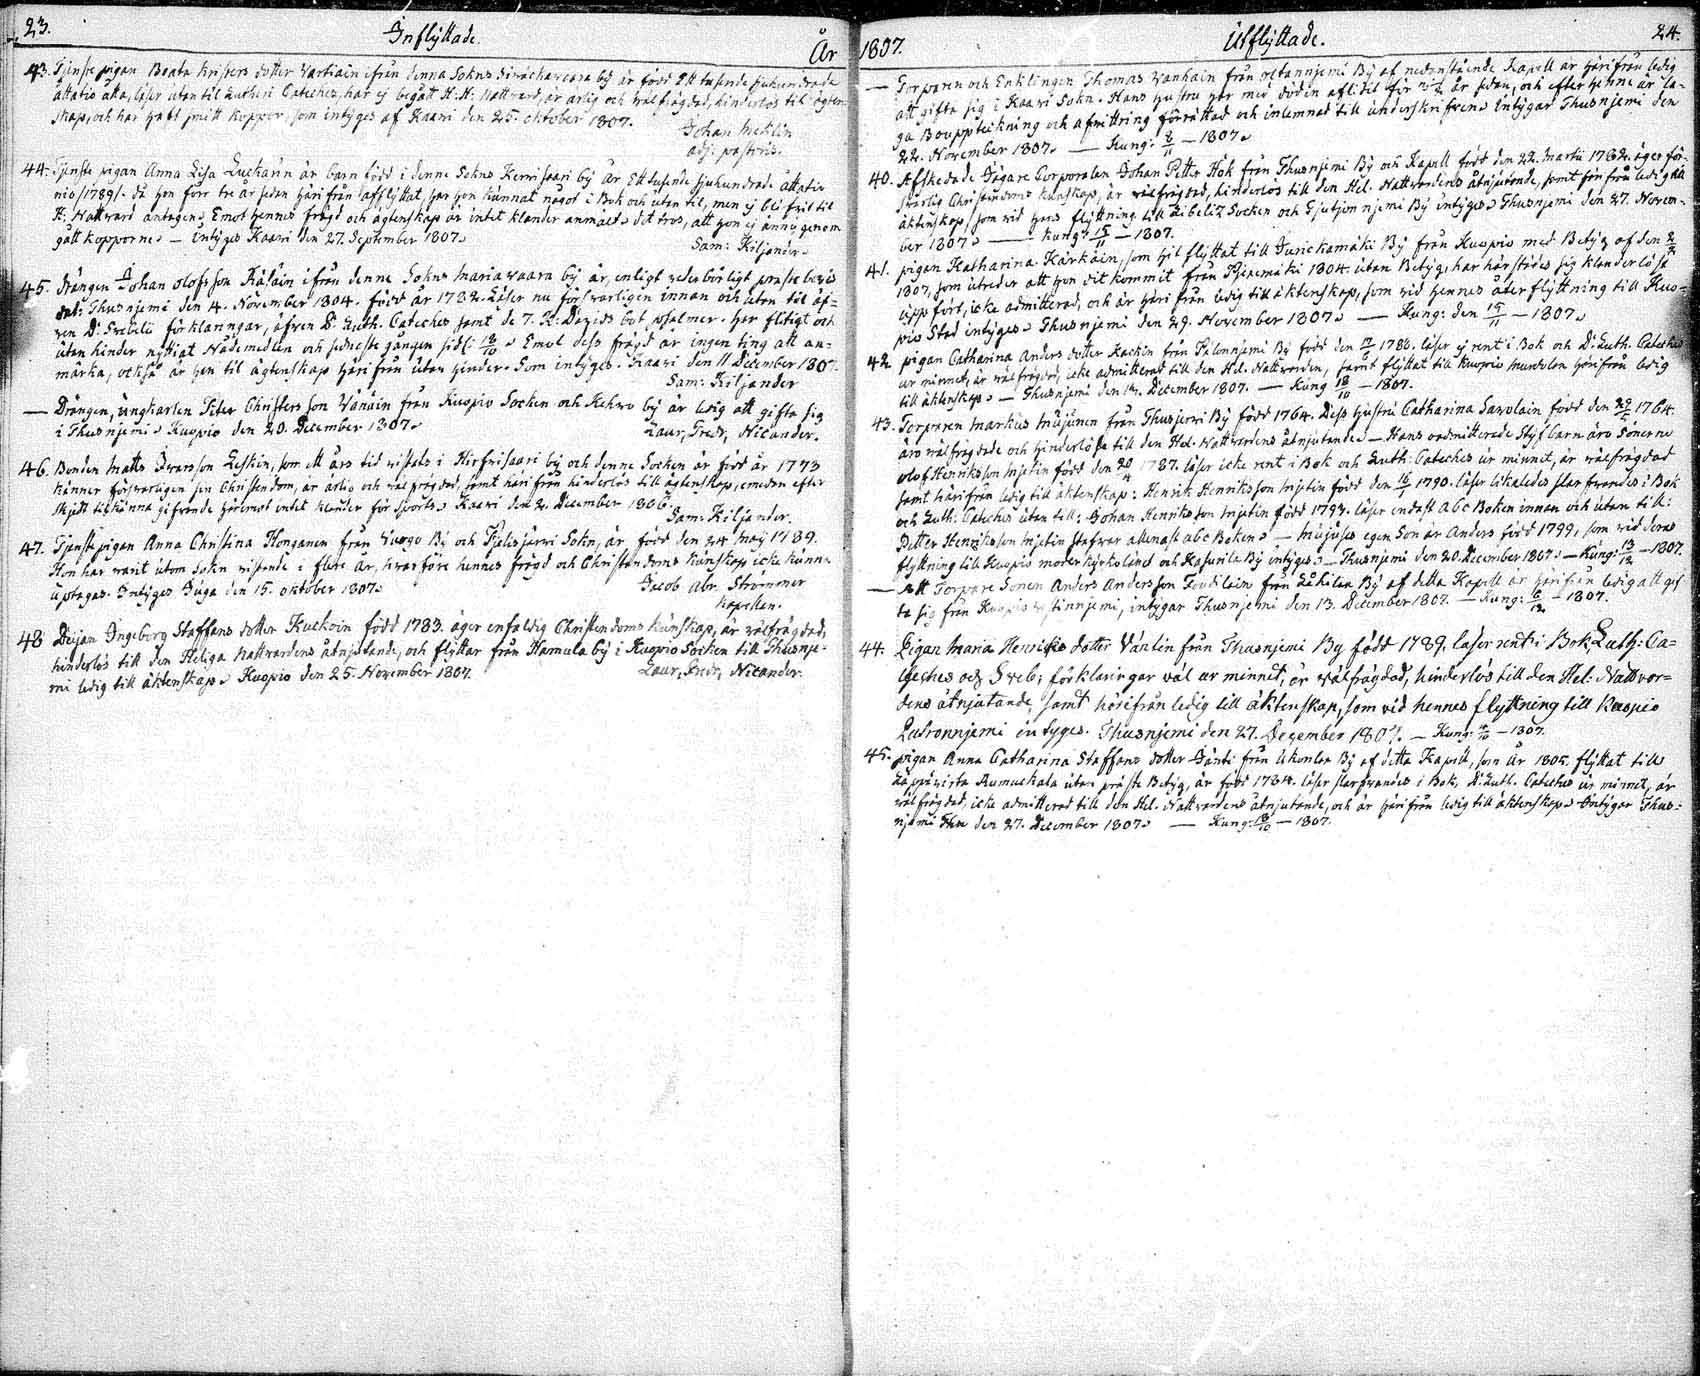 23.
Inflyttade.
År
43. Tjenste pigan Beata Kristers dotter Vartiain ifrån denna Sokns by är född Ett tusende sjuhundrade
åttatio åtta, läser utan til Lutheri Cateches, har ej begått H. H. Nattvard, är ärlig och välfrägdad, hinderlös til ägten-
skap, och har haft koppor, som intyges af Kaavi den 25. oktober 1807.
Johan Meklin
adj: pastoris.
44. Tjenste pigan Anna Lisa är barn född i denne Sokns by År Ett tusende sjuhundrade åttatio
nio /1789/. då hon förr tre år sedan härifrån afflyttat, har hon kunnat något i Bok och utan til, men ej
H: Nattvard antagen. Emot hennes frägd och ägtenskap är intet klander anmält. det tros, att hon ej ännu genom
gått kopporne. — Intyges Kaavi den 27. September 1807.
Sam: Kiljander.
45. Drängen Johan olofsson ifrån denne Sokns Mariavaara by är, enligt vederbörligt preste bevis
dat: Thusnjemi den 4. November 1804. född år 1782. Läser nu försvarligen innan och utan til äf-
ven D: Svebilii förklaringar, äfven D: Luth. Cateches samt de 7. K: Davids bot psalmer. har flitigt och
utan hinder nyttjat Nådemedlen och sednaste gången sidl: 18/10. Emot dess frägd är ingen ting att an-
märka, också är han til ägtenskap härifrån utan hinder. Som intyges. Kaavi den 11 December 1807.
Sam: Kiljander
— Drängen, ungkarlen Peter Christersson Vänäin från Kuopio Socken och Kehvo by är ledig att gifta sig
i Thusnjemi. Kuopio den 20. December 1807.
Laur, Fredr, Nicander.
46. Bonden Matts Ivarsson Leskin, som ett års tid vistats i Hirfvisaari by och denne Socken är född år 1773
känner försvarligen sin Christendom, är ärlig och välfrägdad, samt häri från hinderlös till ägtenskap, emedan efter
skjett tilkänna gifvende häremot intet klander för sports. Kaavi den 2. December 1806.
Sam: Kiljander.
47. Tjenste pigan Anna Christina Honganen från By och Pjelisjervi Sokn, är född den 24 Maij 1789.
Hon har varit utom Sokn vistande i flere år, hvarföre hennes frägd och Christendoms kunskap icke kunna
uptagas. Intyges Juga den 15. oktober 1807.
Jacob Abr. Strömmer
Kapellan.
48 Deijan Ingeborg Staffans dotter född 1783. äger enfaldig Christendoms kunskap, är välfrägdad,
hinderlös till den Heliga Nattvardens åtnjutande, och flyttar från Hamula by i Kuopio Socken till Thusnje-
mi ledig till äktenskap. Kuopio den 25. November 1807.
Laur, Fredr, Nicander.
1807.
Utflyttade.
24.
— Torparen och Enklingen Thomas Vanhain från By af nedanstående Kapell är härifrån ledig
att gifta sig i Kaavi Sokn. Hans hustru har med döden aflidit för år sedan, och efter henne är la-
ga Bouppteckning och afvittring förrättad och inlemnad till underskrifven. Intygar Thusnjemi den
22. November 1807. — Kung: 8/11 — 1807.
40. Afskedade Jägare Corporalen Johan Petter Hök från Thusnjemi By och Kapell född den 22. Martii 1762. äger för-
svarlig Christendoms kunskap, är välfrägdad, hinderlös till den Hel. Nattvardens åtnjutande, samt ledig till
äktenskap, som vid hans flyttning till Libelitz Socken och By intyges. Thusnjemi den 27. Novem-
ber 1807. — Kung: 15/11 — 1807.
41. pigan Katharina Kärkäin, som hit flyttat till Jurickamäki By från Kuopio med Betyg af den
1807, som utreder att hon dit kommit från 1804 utan Betyg, har härstädes sig klanderlöst
uppfört, icke admitterad, och är häri från ledig till äktenskap, som vid hennes återflyttning till Kuo-
pio Stad intyges. Thusnjemi den 29. November 1807. — Kung: den 15/11 — 1807.
42. pigan Catharina Anders dotter Hackin från Palonnjemi By född den 1786. läser ej rent i Bok och D: Luth. Cateches
ur minnet, är välfrägdad, icke admitterad till den Hel. Nattvarden, samt flyttat till Kuopio härifrån ledig
till äktenskap. — Thusnjemi den 14. December 1807. — Kung 18/10 — 1807.
43. Torparen Markus Mujunen från Thusjervi By född 1764. Dess hustru Catharina Savolain född den 1764.
äro välfrägdade och hinderlösa till den Hel. Nattvardens åtnjutande. — Hans oadmitterade Styfbarn äro Sönerne
olof Henriksson född den 1787. läser icke rent i Bok och Luth: Cateches ur minnet, är välfrägdad
samt härifrån ledig till äktenskap: Henrik Henriksson född den 1790. läser likaledes slarfvandes i Bok
och Luth: Cateches utan till: Johan Henriksson född 1793. läser endast abc Boken innan och utan till:
Petter Henriksson stafvar allenast abc Boken. — Mujuses egen Son är Anders född 1799, som vid deras
flyttning till Kuopio moderkyrkoländ och Kasurila By intyges. — Thusnjemi den 20. December 1807. — Kung: 13/12 — 1807.
— Att Torpare Sonen Anders Andersson från By af detta Kapell är härifrån ledig att gif-
ta sig från Kuopio intygar Thusnjemi den 13. December 1807. — Kung: 6/12 — 1807.
44. Pigan Maria Henriks dotter Väntin från Thusnjemi By född 1789. läser rent i Bok Luth: Ca-
teches och Sveb: förklaringar väl ur minnet, är välfrägdad, hinderlös till den Hel: Nattvar-
dens åtnjutande, samt härifrån ledig till äktenskap, som vid hennes flyttning till Kuopio
Putronnjemi intyges. Thusnjemi den 27. December 1807. — Kung: 4/10 — 1807.
45. pigan Anna Catharina Staffans dotter Jänti från Ukonlax By af detta Kapell, som år 1805. flyttat till
Läppävirta utan präste Betyg, är född 1784. läser slarfvandes i Bok, D: Luth. Cateches ur minnet, är
välfrägdad, icke admitterad till den Hel. Nattvardens åtnjutande, och är härifrån ledig till äktenskap. Intygar Thus-
njemi den 27. December 1807. — Kung: 18/10 — 1807.